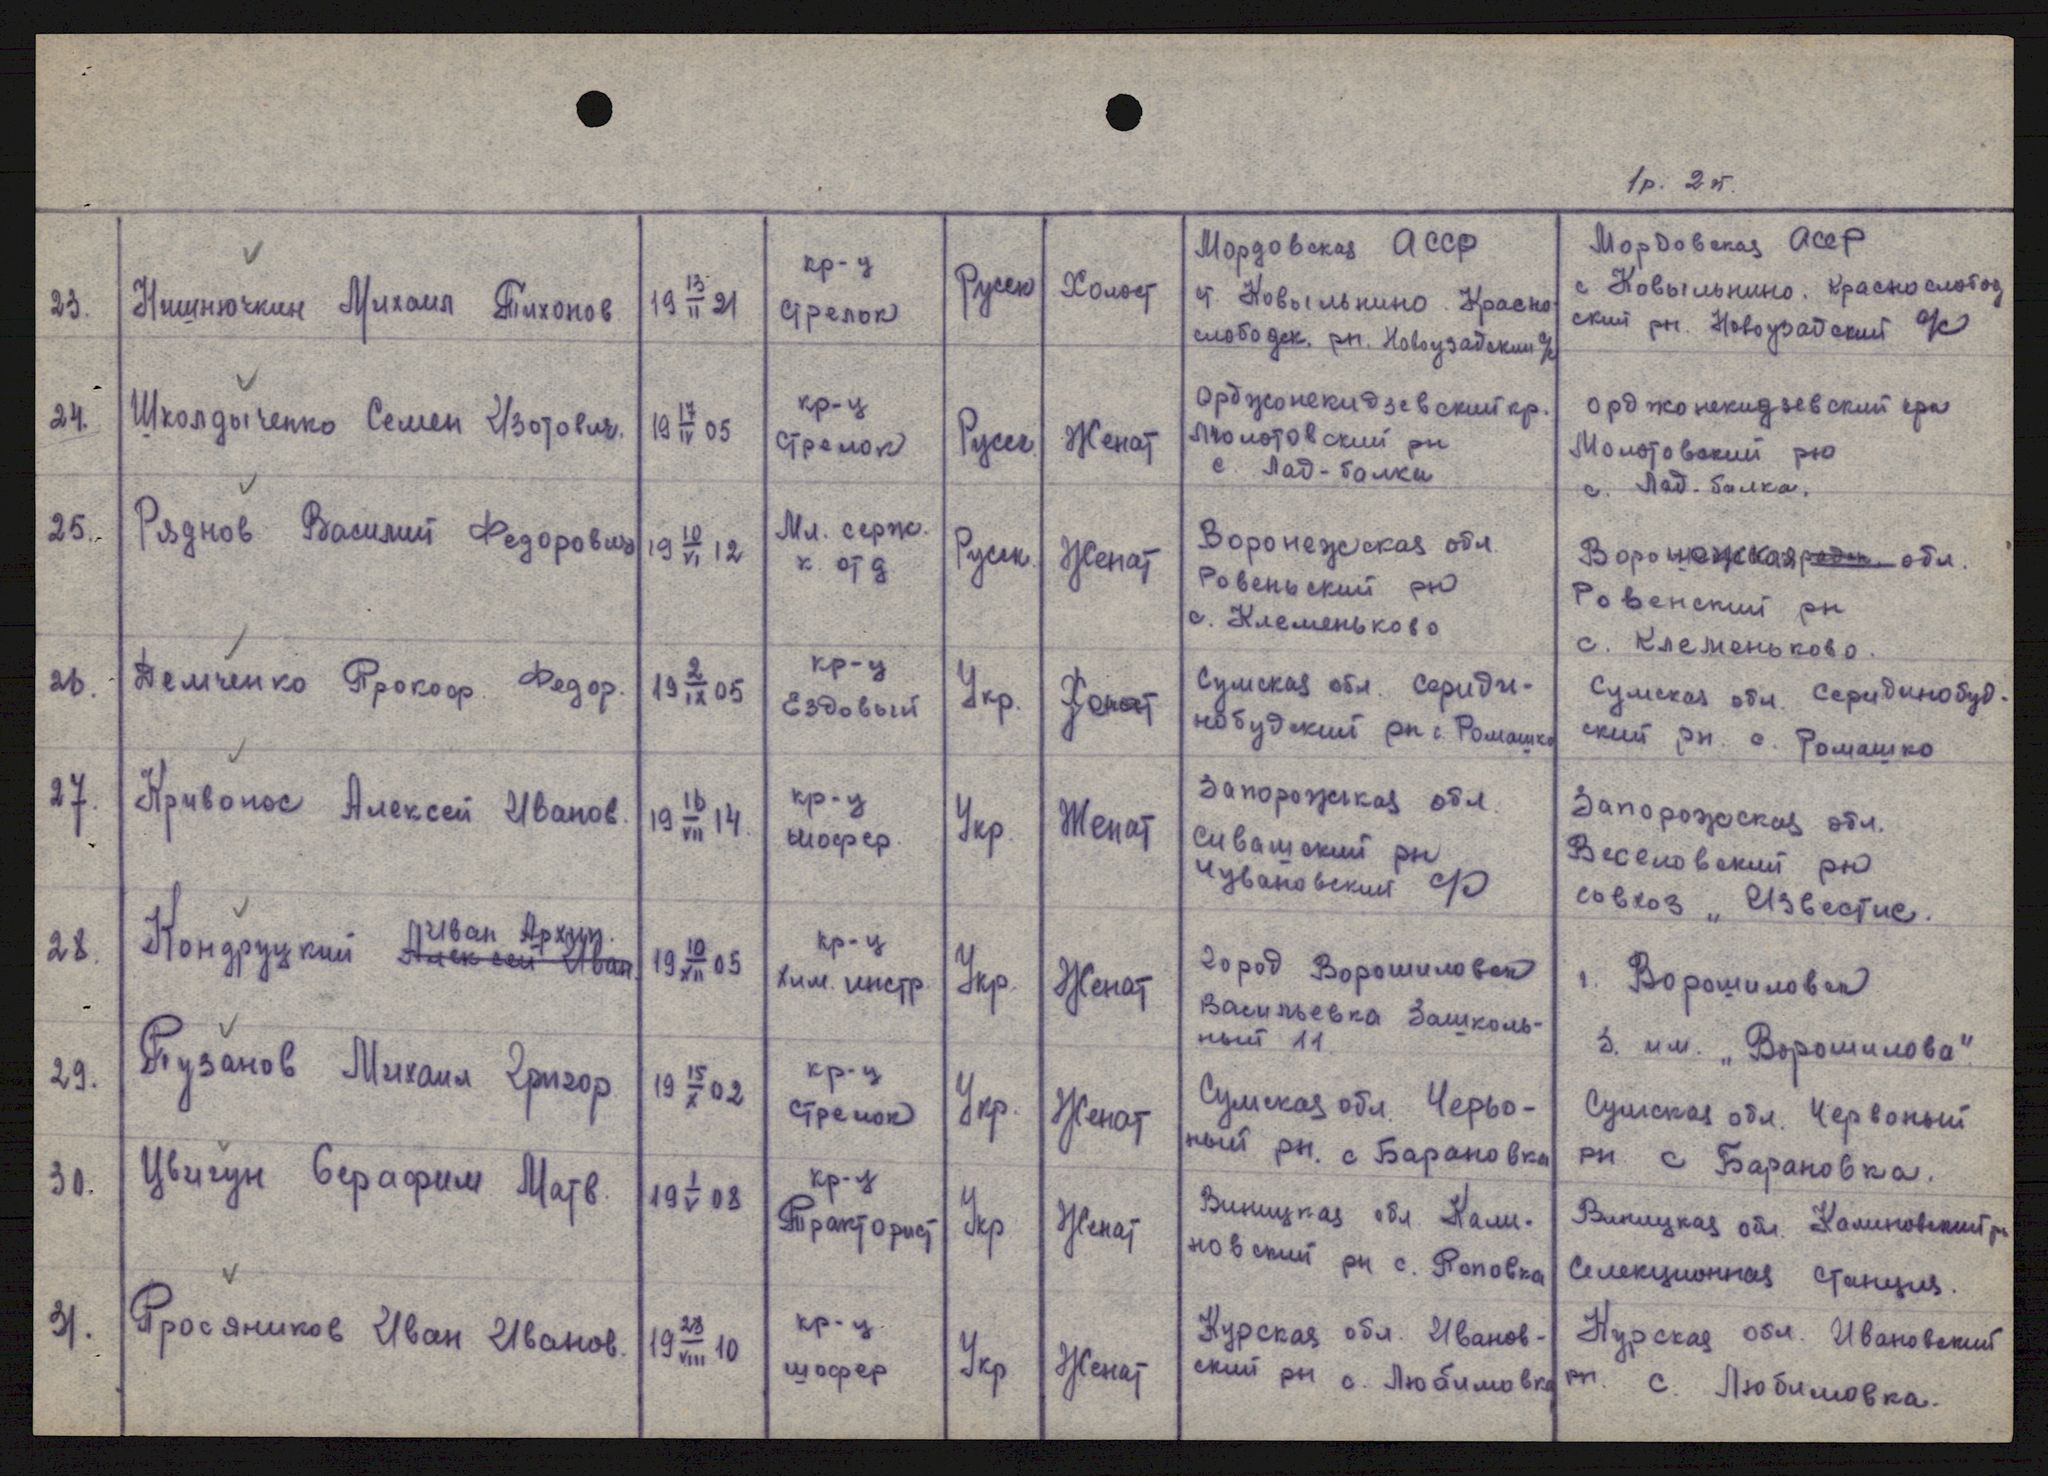 1р. 2 т.
23. Нишнючкин Михаил Тихонов 19 13/II 21 кр-ц стрелок Русск Холост Мордовская АССР ст. Ковылькино. Красно-слободск. рн. Новоузадский с/с Мордовская АССР с Ковылькино. Краснослободский рн. Новоузадский с/с
24. Школдыченко Семен Изотович. 19 17/IV 05 кр-ц стрелок Русск. Женат Орджонекидзевский кр. Молотовский рн с. Лад-балка Орджонекидзевский кр. Молотовский рн с. Лад-балка.
25. Ряднов Василий Федорович 19 10/VI 12 Мл. серж. к отд Русск. Женат Воронежская обл. Ровеньский рн с. Клеменьково Воронежская обл. Ровенский рн с. Клеменьково.
26. Демченко Прокоф. Федор. 19 2/IX 05 кр-ц Ездовый Укр. Сумская обл. Середи-нобудский рн с. Ромашко Сумская обл. Серидинобуд-ский рн. с. Ромашко
27. Кривонос Алексей Иванов. 19 16/VII 14. кр-ц шофер. Укр. Женат Запорожская обл. Сивашский рн Чувановский с/с Запорожская обл. Веселовский рн совхоз „Известие.
28. Кондруцкий Иван Архип. Алексей Иван. 19 10/XII 05 кр-ц хим. инстр. Укр. Женат город Ворошиловск Васильевка Зашколь-ный 11. г. Ворошиловск З. им. „Ворошилова".
29. Пузанов Михаил Григор 19 15/X 02 кр-ц стрелок Укр. Женат Сумская обл. Черво-ный рн. с Барановка Сумская обл. Червоный рн с Барановка.
30. Цвигун Серафим Матв. 19 1/V 08 кр-ц Тракторист Укр Женат Виницкая обл Кали-новский рн с. Поповка Виницкая обл. Калиновский рн Селекционная станция.
31. Просяников Иван Иванов. 19 28/VIII 10 кр-ц шофер Укр Женат Курская обл. Иванов-ский рн с. Любимовка Курская обл. Ивановский рн. с. Любимовка.